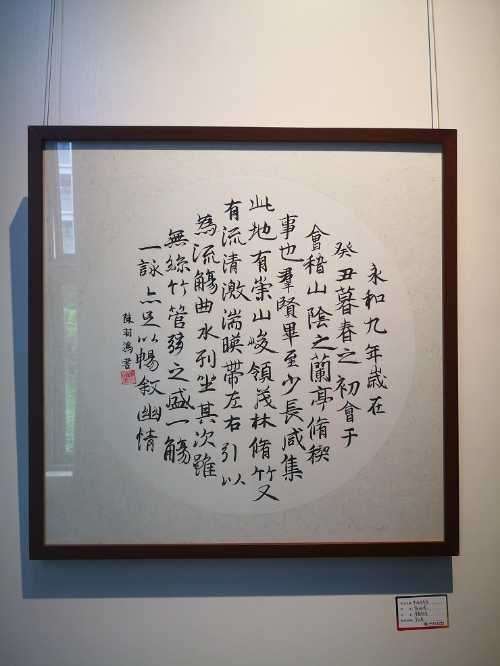 永和九年歲在
癸丑暮春之初會于
會稽山陰之蘭亭脩稧
事也羣賢畢至少長咸集
此地有崇山峻領茂林脩竹又
有流清激湍暎帶左右引以
為流觴曲水列坐其次雖
無絲竹管弦之盛一觴
一詠亦足以暢敘幽情
陳羽